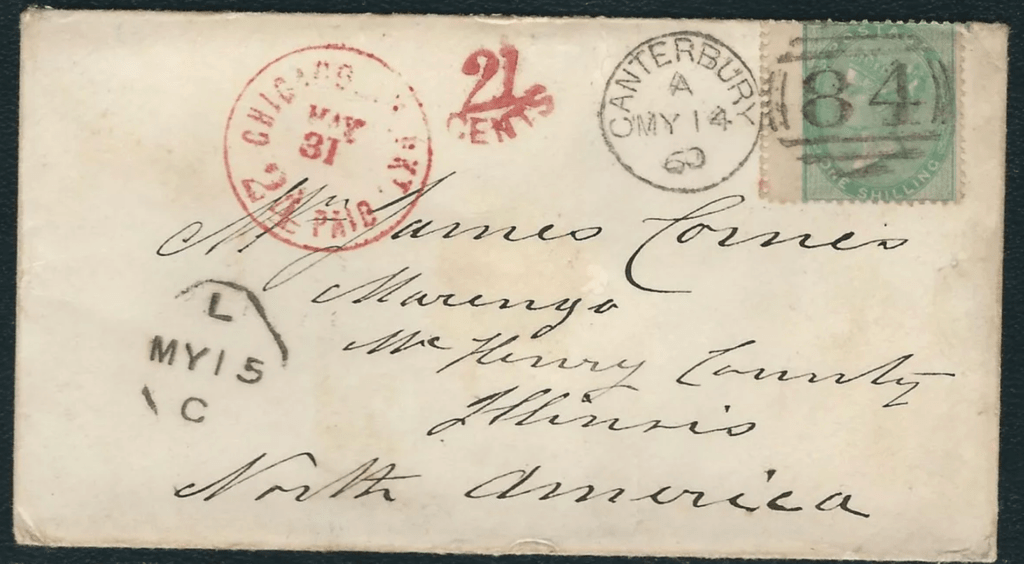 CHICAGO AM. PKT.
MAY
31
PAID
21
CENTS
CANTERBURY
A
MY 14
60
84
POSTAGE
ONE SHILLING
Mr James Cornes
Marengo
Mc Henry County
Illinois
North America
L
MY 15
C